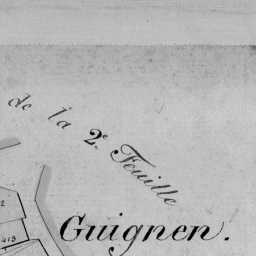 de la 2e Feuille
Guignen.
2
413